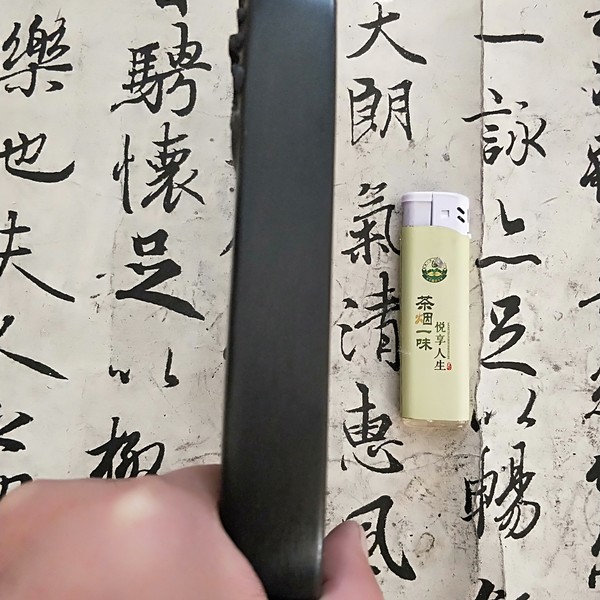 一詠亦足以暢
大朗氣清惠風
騁懷足以極
樂也夫人之
茶烟一味
悦享人生